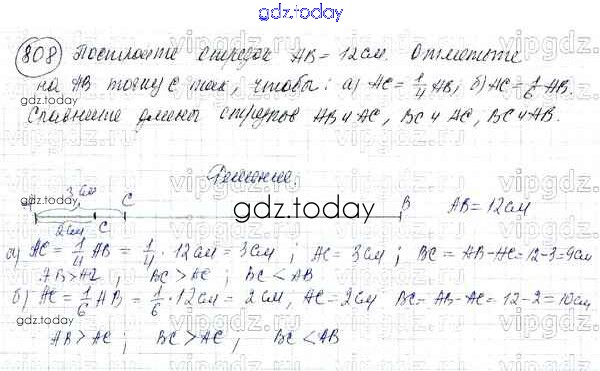 gdz.today
808 Постройте отрезок AB = 12 см. Отметьте
на AB точку C так, чтобы: а) AC = 1/4 AB, б) AC = 1/6 AB.
Сравните длины отрезков AB и AC, BC и AC, BC и AB.
Решение.
3 см
C B AB = 12 см
2 см C
gdz.today
а) AC = 1/4 AB = 1/4 · 12 см = 3 см ; AC = 3 см ; BC = AB - AC = 12 - 3 = 9 см
AB > AC , BC > AC ; BC < AB
б) AC = 1/6 AB = 1/6 · 12 см = 2 см, AC = 2 см BC = AB - AC = 12 - 2 = 10 см
AB > AC ; BC > AC , BC < AB
gdz.today